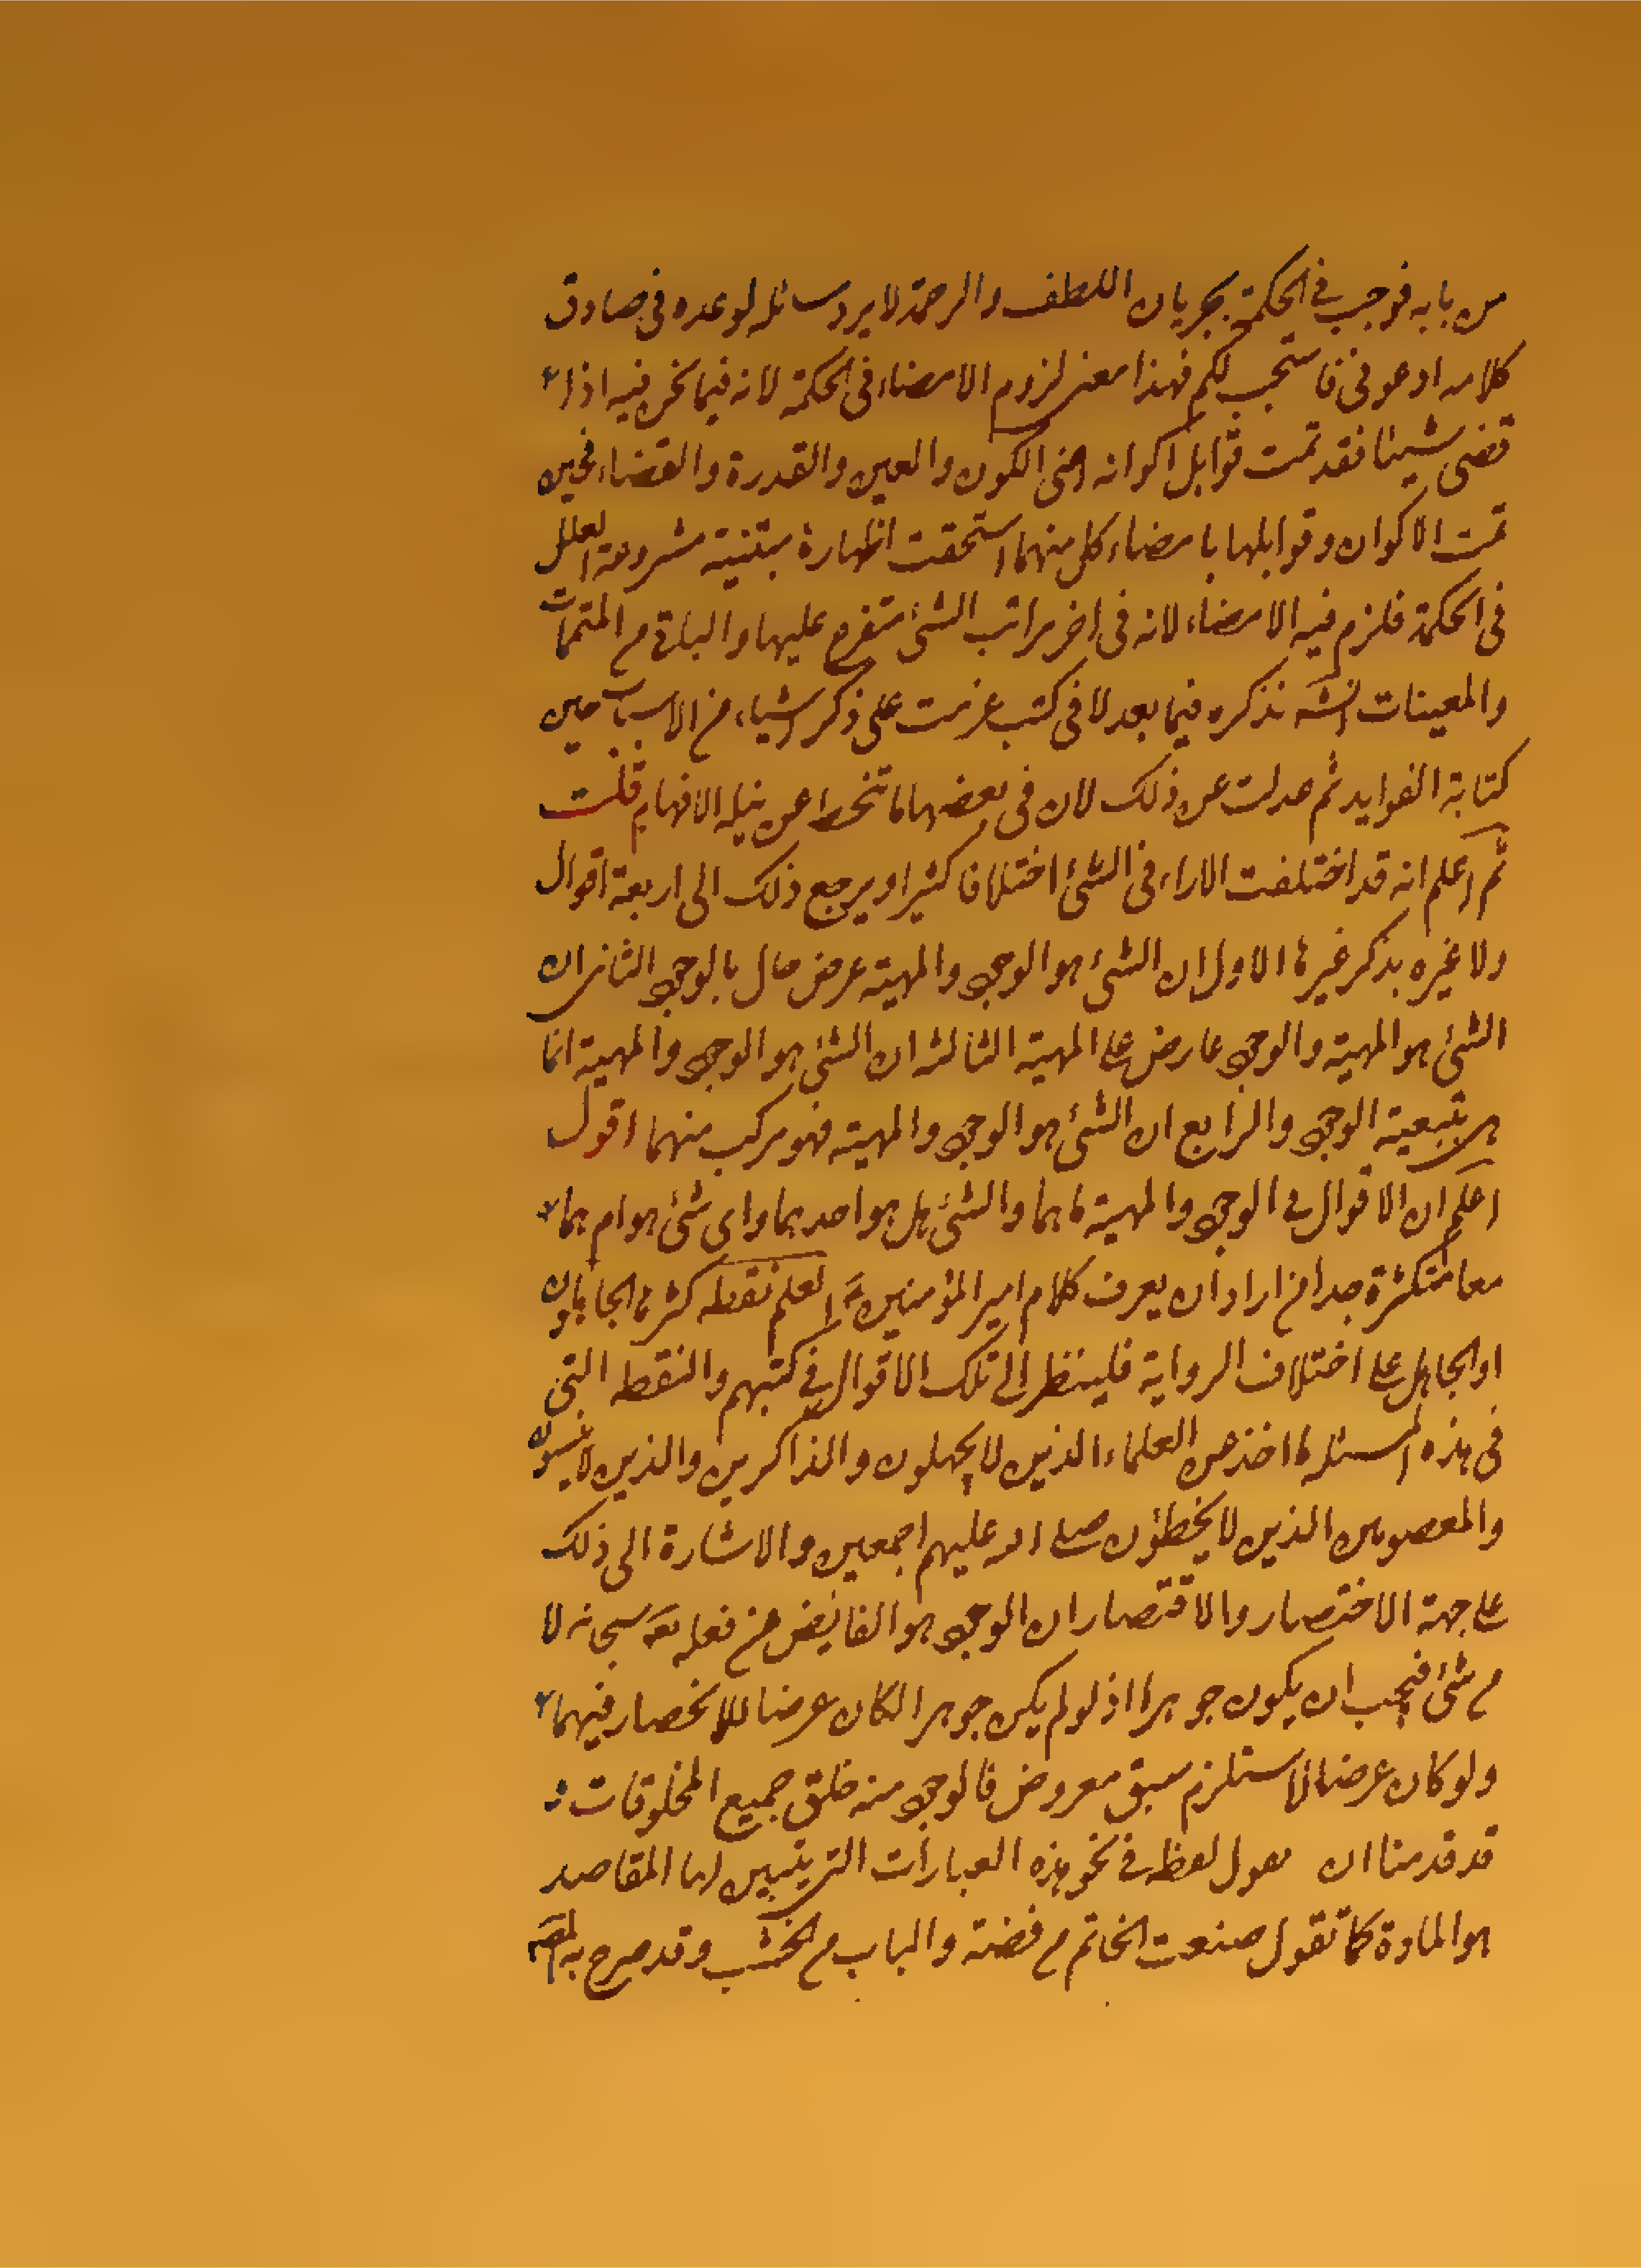 من بابه فوجب في الحكمة بجريان اللطف والرحمة لا يرد سائله لوعده في صادق
كلامه ادعوني فاستجب لكم فهذا معنى لزوم الامضاء في الحكمة لانه فيما نحن فيه اذا
قضى شيئا فقد تمت قوابل اكوانه اعنى الكون والعين والقدرة والقضاء فحين
تمت الاكوان وقوابلها بامضاء كل منهما استحقت اظهاره مبتنية مشروعة العلل
في الحكمة فلزم فيه الامضاء لانه في اخر مراتب الشئ متفرع عليها والباقي من المتممات
والمعينات انشه نذكره فيما بعد لا في كتب عزمت على ذكر اشياء من الاسباب حين
كتابة الفوايد ثم عدلت عن ذلك لان في بعضها ما تنحط عن نيله الافهام قلت
ثم اعلم انه قد اختلفت الاراء في الشئ اختلافا كثيرا ويرجع ذلك الى اربعة اقوال
ولا غيره بذكر غيرها الاول ان الشئ هو الوجو والمهية عرض حال بالوجو الثاني ان
الشئ هو المهية والوجو عارض على المهية الثالث ان الشئ هو الوجو والمهية انما
هي بتبعية الوجو والرابع ان الشئ هو الوجو والمهية فهو مركب منهما اقول
اعلم ان الاقوال في الوجو والمهية ما هما والشئ هل هو احدهما واي شئ هو ام هما
معا متكثرة جدا من اراد ان يعرف كلام امير المؤمنين ع العلم نقطه كثرها الجاهلون
او الجاهل على اختلاف الرواية فلينظر الى تلك الاقوال في كتبهم والنقطه التي
في هذه المسئله ما اخذ عن العلماء الذين لا يجهلون والذاكرين والذين لا ينسون
والمعصومين الذين لا يخطؤن صلى الله عليهم اجمعين والاشارة الى ذلك
على جهة الاختصار والاقتصار ان الوجو هو الفايض من فعله تعه سبحانه لا
من شئ فيجب ان يكون جوهرا اذ لو لم يكن جوهرا لكان عرضا للانحصار فيهما
ولو كان عرضا لاستلزم سبق معروض فالوجو منه خلق جميع المخلوقات
قد قدمنا ان لفظ في نحو هذه العبارات التي يتبين لها المقاصد
هو المادة كما تقول صنعت الخاتم من فضة والباب من الخشب وقد صرح به